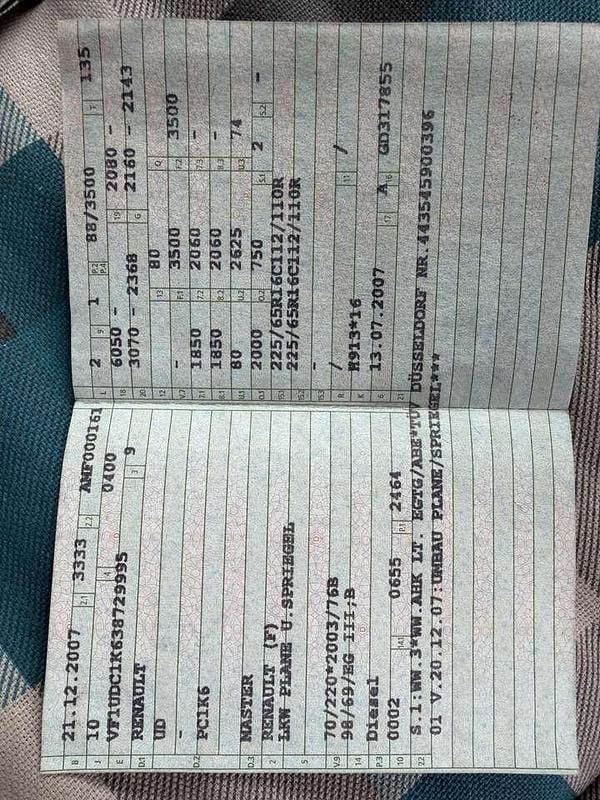 B 21.12.2007 2.1 3333 2.2 AMF000161
J 10 4 0400
E VF1UDC1K638729995 3 9
D.1 RENAULT
UD
-
D.2 PC1K6
D.3 MASTER
2 RENAULT (F)
LKW PLANE U.SPRIEGEL
5
V.9 70/220*2003/76B
14 98/69/EG III;B
P.3 Diesel
10 0002 14.1 0655 P.1 2464
22 S.1:WW.3*WW.AHK LT. EGTG/ABE*TÜV DÜSSELDORF NR.443545900396
01 V.20.12.07:UMBAU PLANE/SPRIEGEL***
L 2 9 1 P.2 P.4 88/3500 T 135
18 6050 - 19 2080 -
20 3070 - 2368 G 2160 - 2143
12 - 13 80 Q
V.7 - F.1 3500 F.2 3500
7.1 1850 7.2 2060 7.3 -
8.1 1850 8.2 2060 8.3 -
U.1 80 U.2 2625 U.3 74
O.1 2000 O.2 750 S.1 2 S.2 -
15.1 225/65R16C112/110R
15.2 225/65R16C112/110R
15.3 -
R / 11 /
K H913*16
6 13.07.2007 17 A 16 GD317855
21